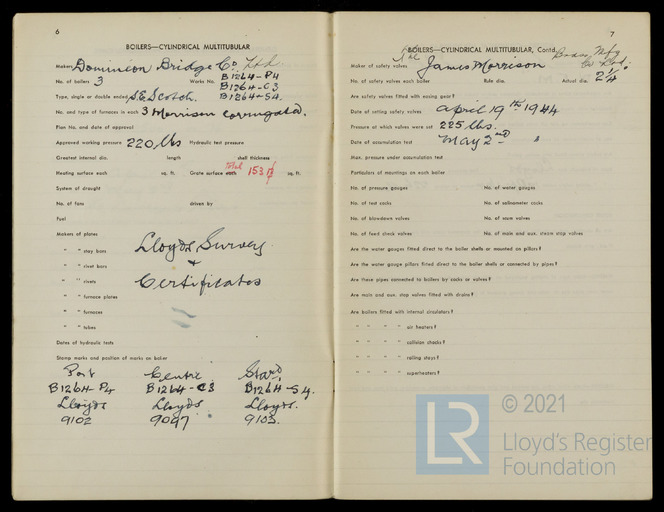 6
BOILERS—CYLINDRICAL MULTITUBULAR
Makers Dominion Bridge Co. Ltd
No. of boilers 3 Works No. B1264-P4
B1264-C3
Type, single or double ended S.E. Scotch. B1264-S4.
No. and type of furnaces in each 3 Morrison corrugated.
Plan No. and date of approval
Approved working pressure 220 lbs Hydraulic test pressure
Greatest internal dia. length shell thickness
Heating surface each sq. ft. Grate surface each total 153 sq. ft.
System of draught
No. of fans driven by
Fuel
Makers of plates
" " stay bars Lloyds Survey
" " rivet bars &
" " rivets Certificates
" " furnace plates
" " furnaces
" " tubes
Dates of hydraulic tests
Stamp marks and position of marks on boiler
Port Centre Starb.
B1264-P4 B1264-C3 B1264-S4.
Lloyds Lloyds Lloyds.
9102 9097 9103.
7
BOILERS—CYLINDRICAL MULTITUBULAR, Contd.
Maker of safety valves The James Morrison Brass Mfg Co Ltd.
No. of safety valves each boiler Rule dia. Actual dia. 2¼
Are safety valves fitted with easing gear?
Date of setting safety valves April 19th 1944
Pressure at which valves were set 225 lbs.
Date of accumulation test May 2nd "
Max. pressure under accumulation test
Particulars of mountings on each boiler
No. of pressure gauges No. of water gauges
No. of test cocks No. of salinometer cocks
No. of blowdown valves No. of scum valves
No. of feed check valves No. of main and aux. steam stop valves
Are the water gauges fitted direct to the boiler shells or mounted on pillars?
Are the water gauge pillars fitted direct to the boiler shells or connected by pipes?
Are these pipes connected to boilers by cocks or valves?
Are main and aux. stop valves fitted with drains?
Are boilers fitted with internal circulators?
" " " " air heaters?
" " " " collision chocks?
" " " " rolling stays?
" " " " superheaters?
LR
© 2021
Lloyd's Register
Foundation